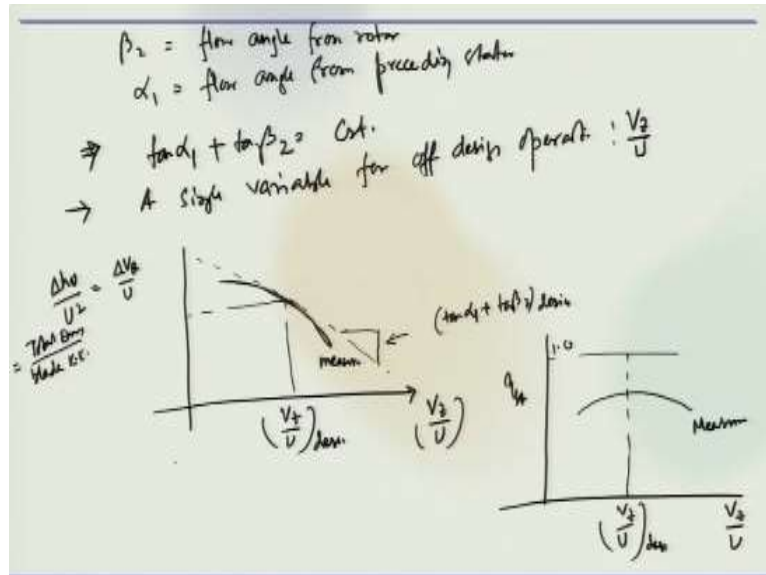 β₂ = flow angle from rotor
α₁ = flow angle from preceding stator
⇒ tanα₁ + tanβ₂ = Cst.
→ A single variable for off design operat. : Vz/U
Δh₀/U² = ΔVθ/U
= Total Energy/blade K.E.
(tanα₁ + tanβ₂) design
measu.
(Vz/U)desi.
(Vz/U)
1.0
ηst
Measu
(Vz/U)des
Vz/U